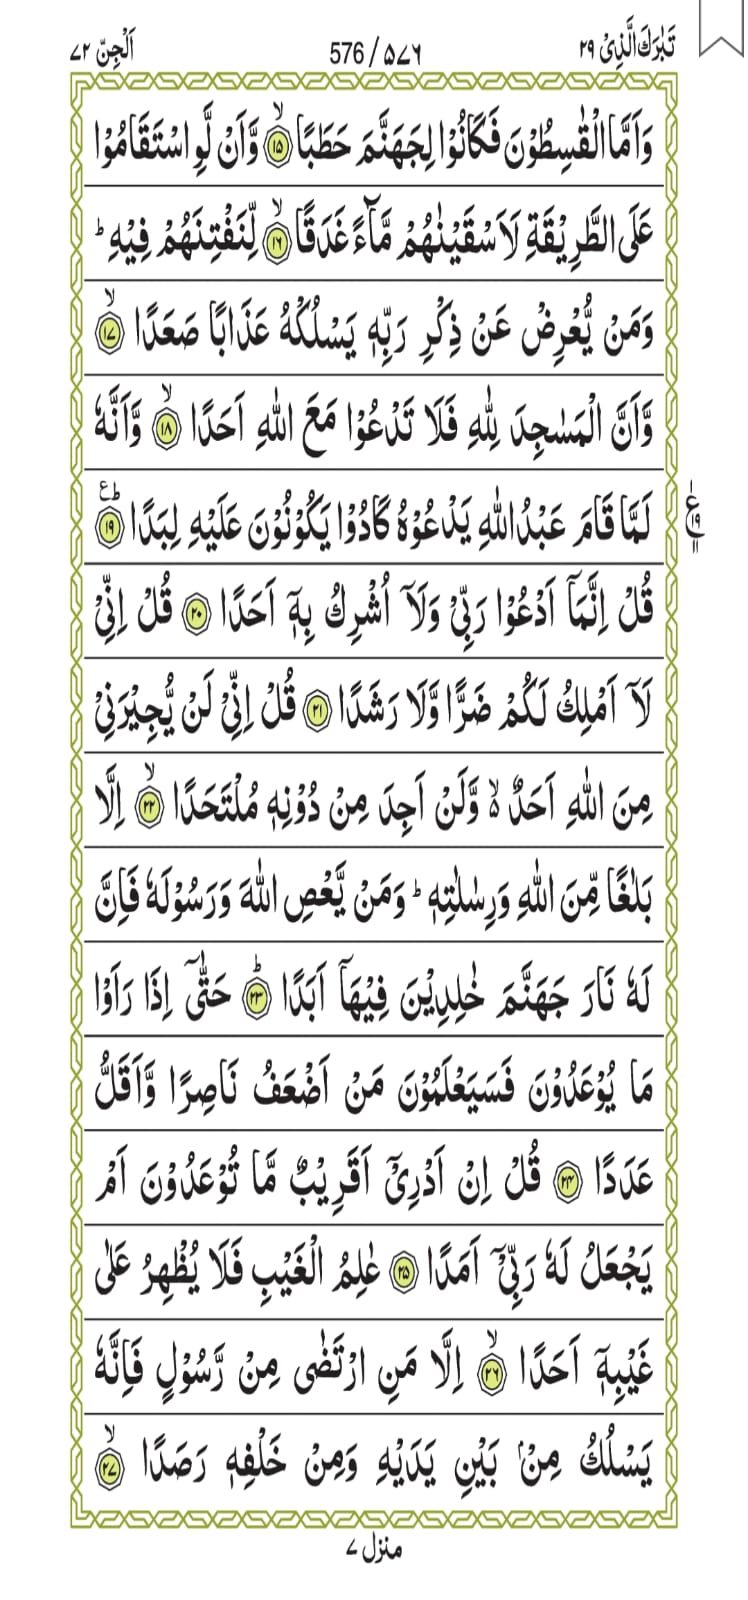 تَبٰرَكَ الَّذِىْ ٢٩ 576 / ۵۷۶ اَلْجِنّ ۷۲
وَاَمَّا الْقٰسِطُوْنَ فَكَانُوْا لِجَهَنَّمَ حَطَبًا ۙ‏﴿۱۵﴾ وَّاَنْ لَّوِ اسْتَقَامُوْا
عَلَى الطَّرِيْقَةِ لَاَسْقَيْنٰهُمْ مَّآءً غَدَقًا ۙ‏﴿۱۶﴾ لِّنَفْتِنَهُمْ فِيْهِ ؕ
وَمَنْ يُّعْرِضْ عَنْ ذِكْرِ رَبِّهٖ يَسْلُكْهُ عَذَابًا صَعَدًا ۙ‏﴿۱۷﴾
وَّاَنَّ الْمَسٰجِدَ لِلّٰهِ فَلَا تَدْعُوْا مَعَ اللّٰهِ اَحَدًا ۙ‏﴿۱۸﴾ وَّاَنَّهٗ
لَمَّا قَامَ عَبْدُ اللّٰهِ يَدْعُوْهُ كَادُوْا يَكُوْنُوْنَ عَلَيْهِ لِبَدًا ؕع‏﴿۱۹﴾
ع ۱۹ ۱۱
قُلْ اِنَّمَاۤ اَدْعُوْا رَبِّىْ وَلَاۤ اُشْرِكُ بِهٖۤ اَحَدًا ﴿۲۰﴾ قُلْ اِنِّىْ
لَاۤ اَمْلِكُ لَكُمْ ضَرًّا وَّلَا رَشَدًا ﴿۲۱﴾ قُلْ اِنِّىْ لَنْ يُّجِيْرَنِىْ
مِنَ اللّٰهِ اَحَدٌ ۙ وَّلَنْ اَجِدَ مِنْ دُوْنِهٖ مُلْتَحَدًا ۙ‏﴿۲۲﴾ اِلَّا
بَلٰغًا مِّنَ اللّٰهِ وَرِسٰلٰتِهٖ ؕ وَمَنْ يَّعْصِ اللّٰهَ وَرَسُوْلَهٗ فَاِنَّ
لَهٗ نَارَ جَهَنَّمَ خٰلِدِيْنَ فِيْهَاۤ اَبَدًا ؕ‏﴿۲۳﴾ حَتّٰٓى اِذَا رَاَوْا
مَا يُوْعَدُوْنَ فَسَيَعْلَمُوْنَ مَنْ اَضْعَفُ نَاصِرًا وَّاَقَلُّ
عَدَدًا ﴿۲۴﴾ قُلْ اِنْ اَدْرِىْۤ اَقَرِيْبٌ مَّا تُوْعَدُوْنَ اَمْ
يَجْعَلُ لَهٗ رَبِّىْۤ اَمَدًا ﴿۲۵﴾ عٰلِمُ الْغَيْبِ فَلَا يُظْهِرُ عَلٰى
غَيْبِهٖۤ اَحَدًا ۙ‏﴿۲۶﴾ اِلَّا مَنِ ارْتَضٰى مِنْ رَّسُوْلٍ فَاِنَّهٗ
يَسْلُكُ مِنْۢ بَيْنِ يَدَيْهِ وَمِنْ خَلْفِهٖ رَصَدًا ۙ‏﴿۲۷﴾
منزل ۷